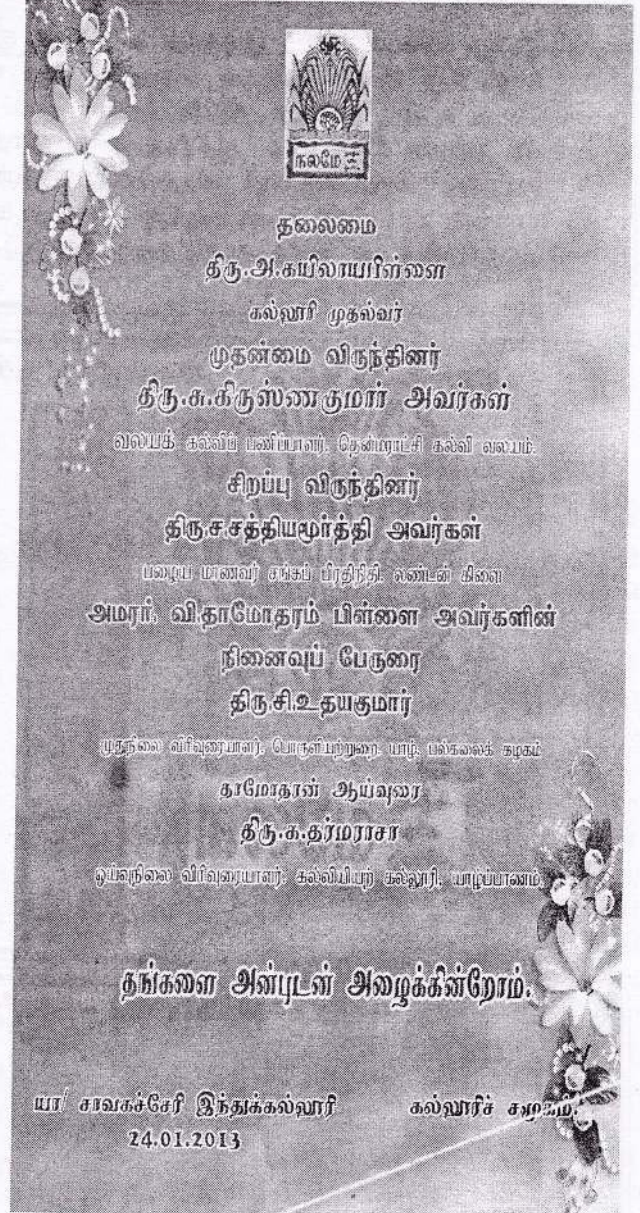 நலமே
தலைமை
திரு.அ.கயிலாயபிள்ளை
கல்லூரி முதல்வர்
முதன்மை விருந்தினர்
திரு.சு.கிருஸ்ணகுமார் அவர்கள்
வலயக் கல்விப் பணிப்பாளர், தென்மராட்சி கல்வி வலயம்.
சிறப்பு விருந்தினர்
திரு.ச.சத்தியமூர்த்தி அவர்கள்
பழைய மாணவர் சங்கப் பிரதிநிதி, லண்டன் கிளை
அமரர். வி.தாமோதரம் பிள்ளை அவர்களின்
நினைவுப் பேருரை
திரு.சி.உதயகுமார்
முதுநிலை விரிவுரையாளர், பொருளியற்றுறை, யாழ். பல்கலைக் கழகம்
தாமோதரன் ஆய்வுரை
திரு.க.தர்மராசா
ஓய்வுநிலை விரிவுரையாளர், கல்வியியற் கல்லூரி, யாழ்ப்பாணம்.
தங்களை அன்புடன் அழைக்கின்றோம்.
யா/ சாவகச்சேரி இந்துக்கல்லூரி கல்லூரிச் சமூகம்.
24.01.2013